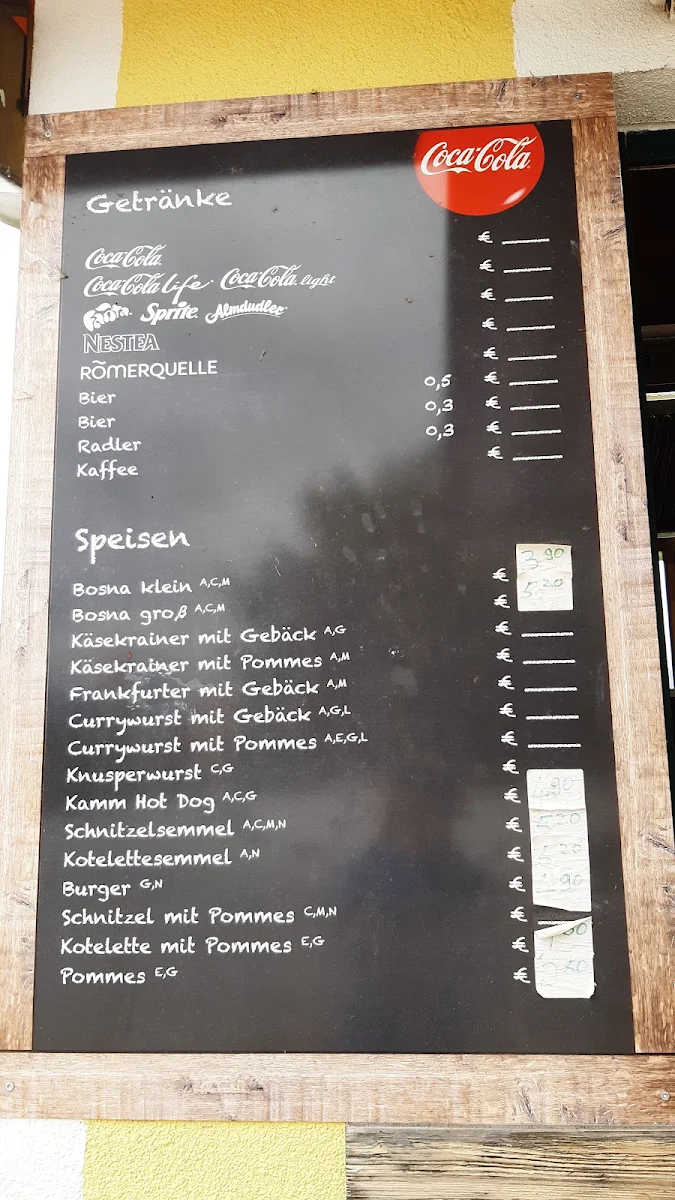 Coca-Cola
Getränke
Coca-Cola €
Coca-Cola Life Coca-Cola light €
Fanta Sprite Almdudler €
NESTEA €
RÖMERQUELLE €
Bier 0,5 €
Bier 0,3 €
Radler 0,3 €
Kaffee €
Speisen
Bosna klein A,C,M € 3,90
Bosna groß A,C,M € 5,20
Käsekrainer mit Gebäck A,G €
Käsekrainer mit Pommes A,M €
Frankfurter mit Gebäck A,M €
Currywurst mit Gebäck A,G,L €
Currywurst mit Pommes A,E,G,L €
Knusperwurst C,G €
Kamm Hot Dog A,C,G €
Schnitzelsemmel A,C,M,N €
Kotelettesemmel A,N €
Burger G,N €
Schnitzel mit Pommes C,M,N €
Kotelette mit Pommes E,G €
Pommes E,G €